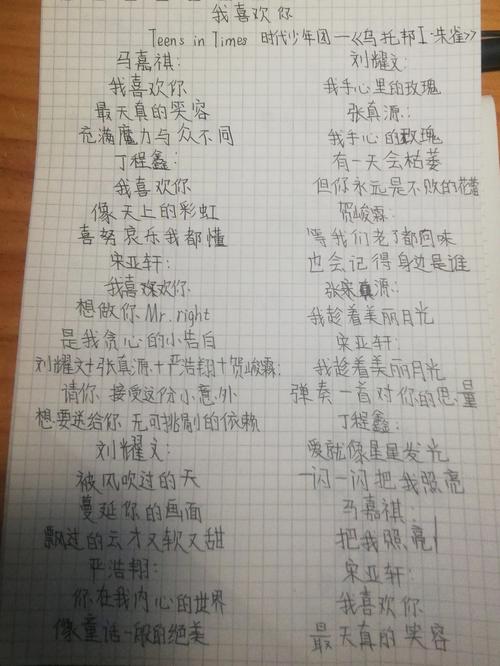 我喜欢你
Teens in Times 时代少年团—《乌托邦I·朱雀》
马嘉祺:
我喜欢你
最天真的笑容
充满魔力与众不同
丁程鑫:
我喜欢你
像天上的彩虹
喜怒哀乐我都懂
宋亚轩:
我喜欢你
想做你Mr.right
是我贪心的小告白
刘耀文+张真源+严浩翔+贺峻霖:
请你,接受这份小意外
想要送给你无可挑剔的依赖
刘耀文:
被风吹过的天
蔓延你的画面
飘过的云才又软又甜
严浩翔:
你在我内心的世界
像童话一般的绝美
刘耀文:
我手心里的玫瑰
张真源:
我手心的玫瑰
有一天会枯萎
但你永远是不败的花蕾
贺峻霖:
等我们老了都回味
也会记得身边是谁
张真源:
我趁着美丽月光
宋亚轩:
我趁着美丽月光
弹奏一首对你的思量
丁程鑫:
爱就像星星发光
一闪一闪把我照亮
马嘉祺:
把我照亮
宋亚轩:
我喜欢你
最天真的笑容